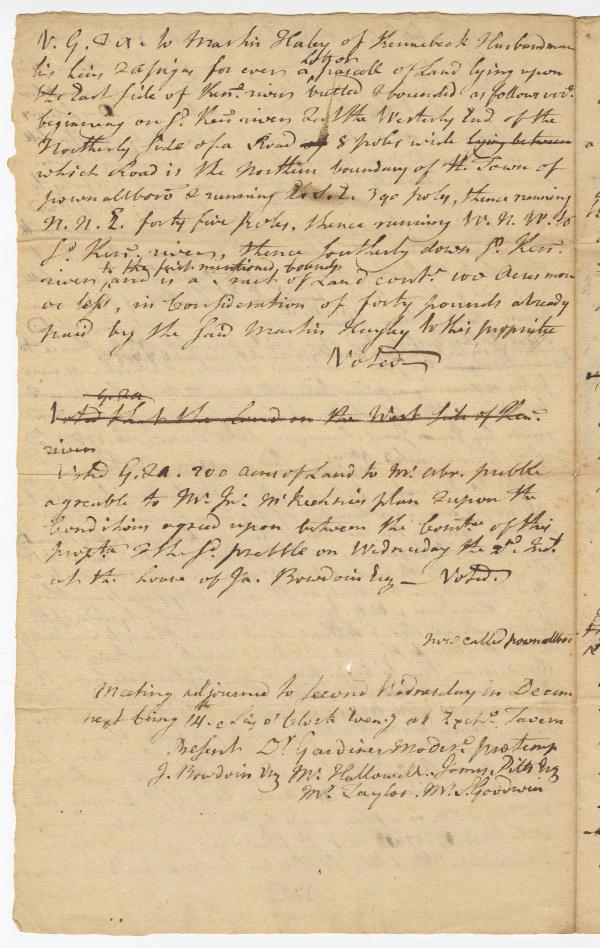 V. G. & A. to Martin Haley of Kennebeck Husbandman
his heirs & assigns for ever a Lott or parcell of Land lying upon
the East side of Kenn. river butted & bounded as follows viz.
beginning on sd. Kenn. river & at the Westerly End of the
Northerly side of a Road of 8 poles wide lying between
which Road is the Northern boundary of the Town of
pownallboro & running E. S. E. 390 poles, thence running
N. N. E. forty five poles, thence running W. N. W. to
sd. Kenn. river, thence southerly down sd. Kenn.
river, to the first mentioned bounds and is a Tract of Land contg. 100 Acres more
or less, in Consideration of forty pounds already
paid by the said Martin Hayley to this propriete
Voted
G. & A
Voted that the Land on the West side of Ken.
river
Voted G. & A. 200 acres of Land to Mr. Abr. prebble
agreable to Mr. Jno. McKechnies plan & upon the
Conditions agreed upon between the Comtee of this
& the sd. prebble on Wednesday the Inst.
at the house of Ja. Bowdoin Esq — Voted.
now called pownallboro
Meeting adjourned to second Wednesday in Decem
next being 14th. Six o'Clock Eveng at Exche. Tavern
present Dr. Gardiner Moderr. pro temp
J. Bowdoin Esq Mr. Hallowell. James Pitts Esq
Mr. Taylor. Mr. S. Goodwin